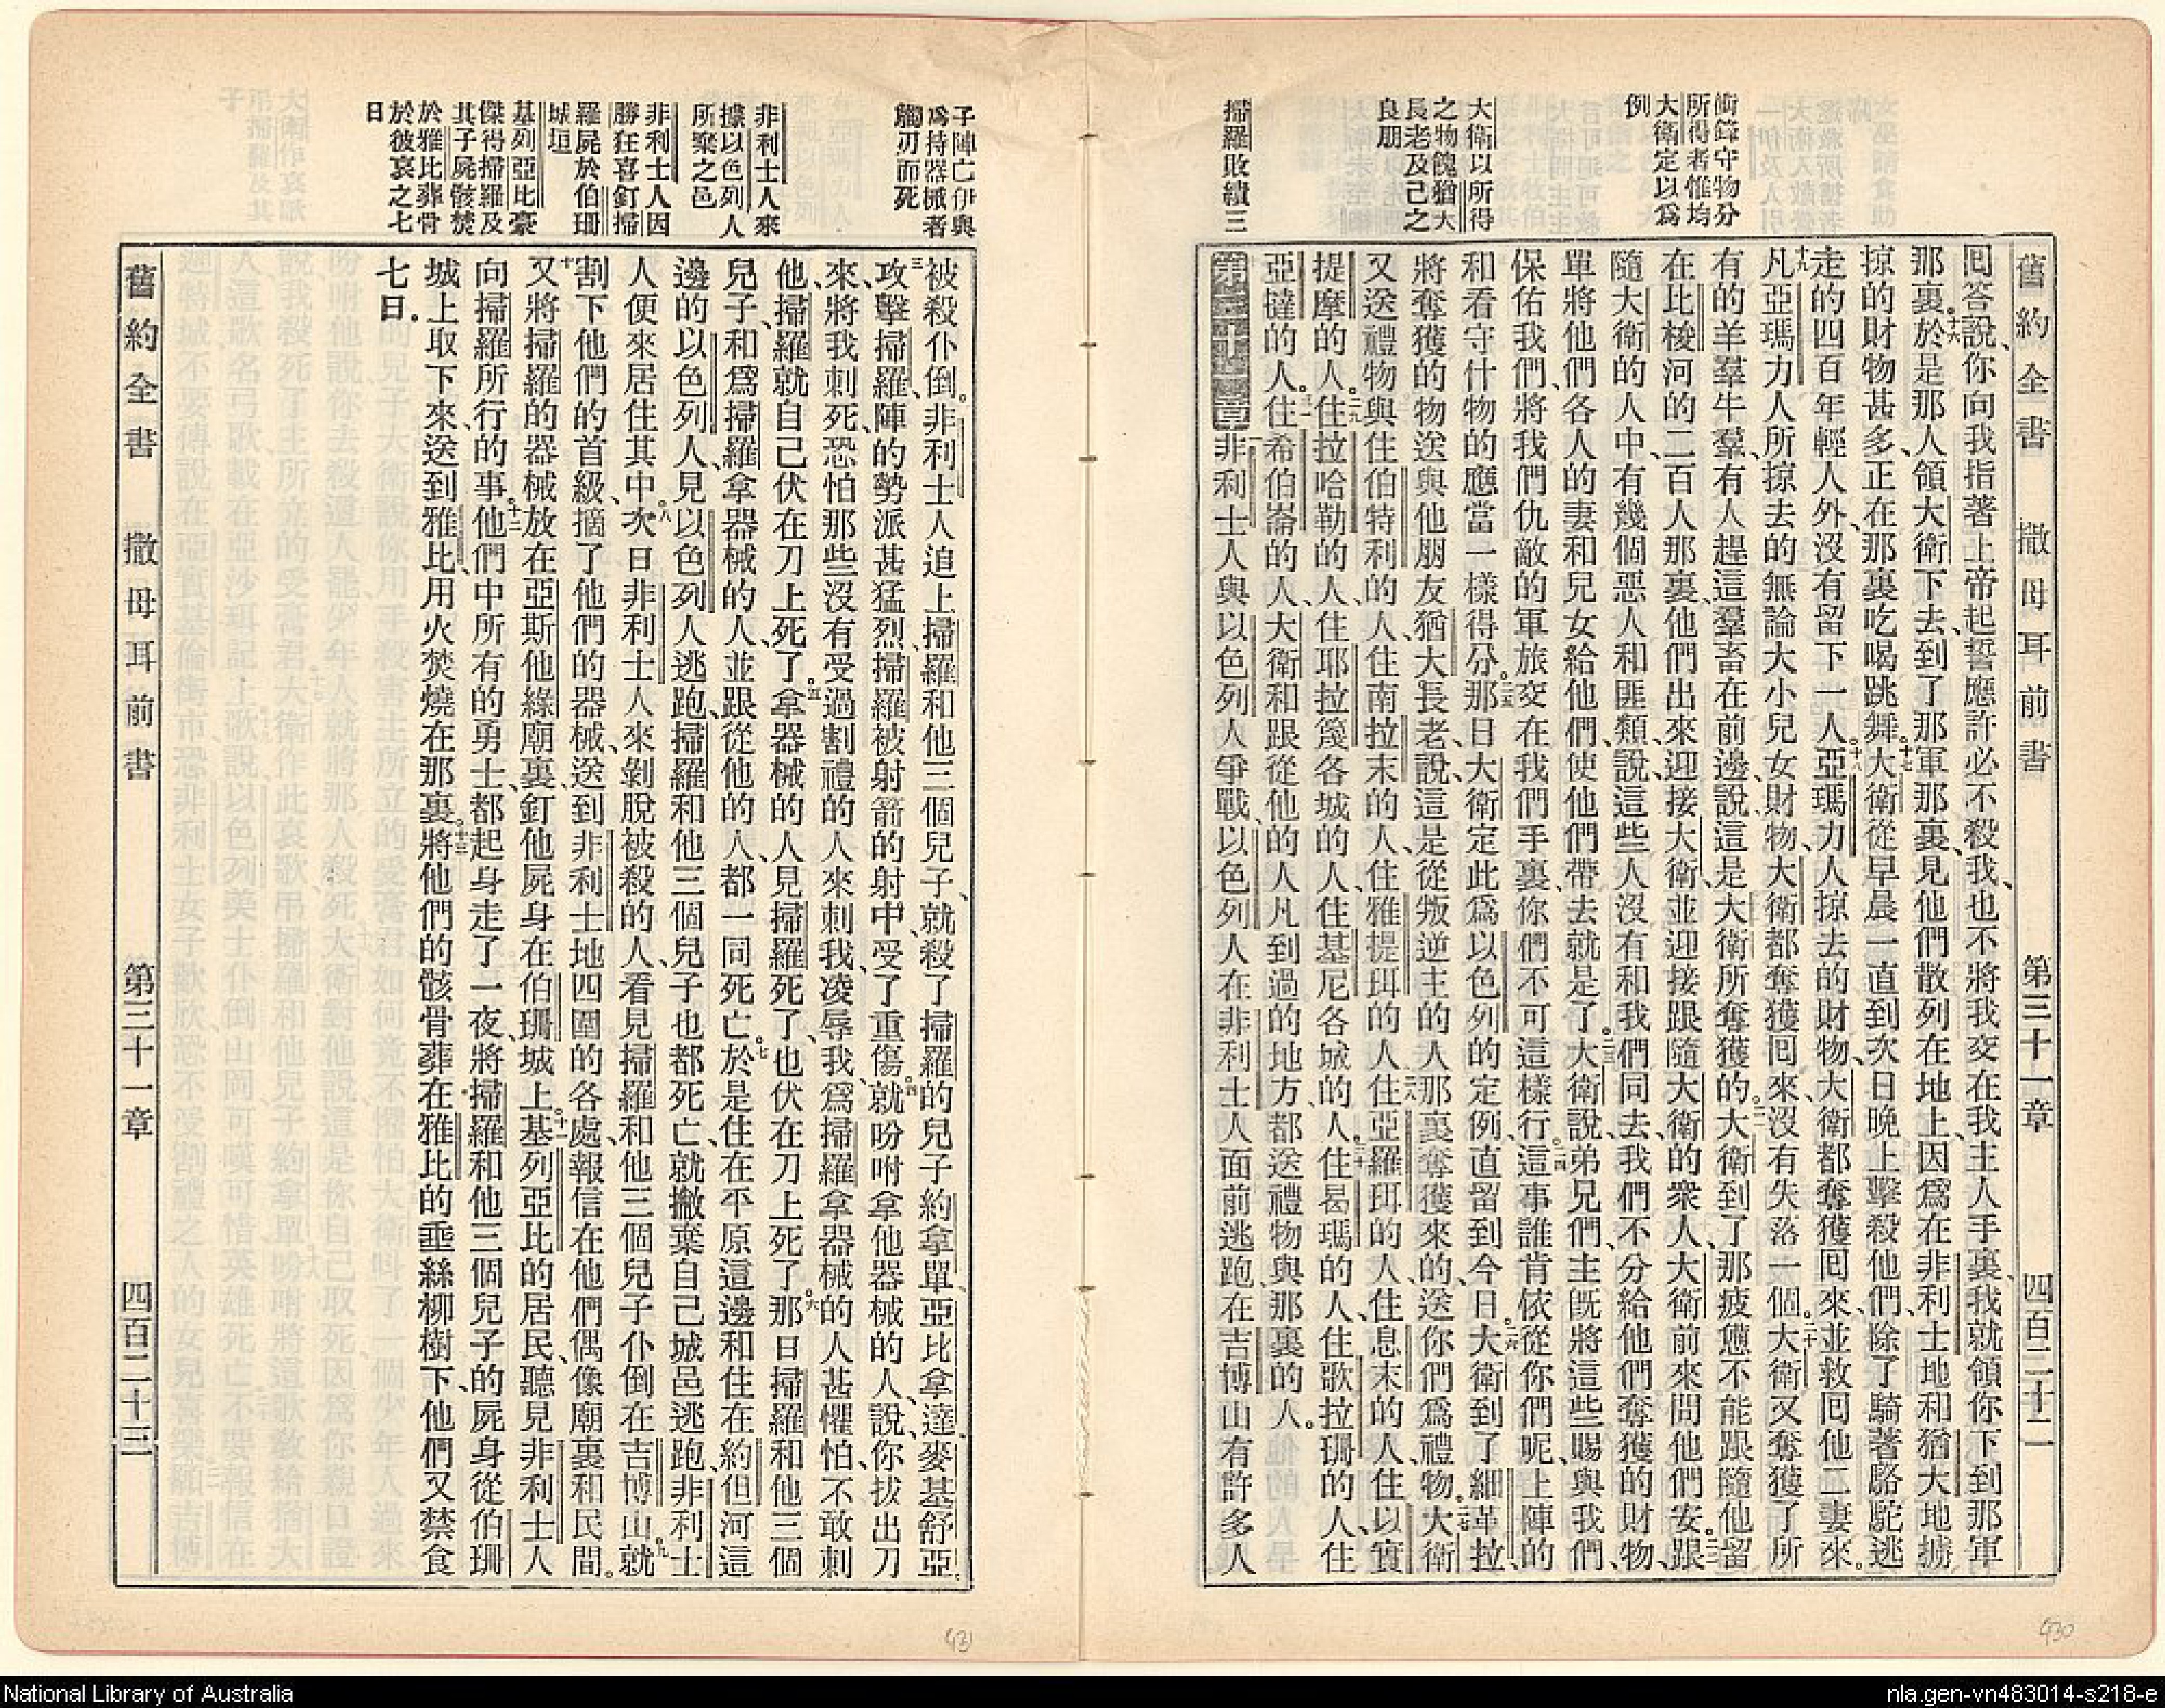 舊約全書 撒母耳前書 第三十一章 四百二十二
衝鋒守物分
所得者惟均
大衛定以爲
例
大衛以所得
之物餽猶大
長老及己之
良朋
掃羅敗績三
回答說、你向我指著上帝起誓、應許必不殺我、也不將我交在我主人手裏、我就領你下到那軍
那裏。十六於是那人領大衛下去、到了那軍那裏、見他們散列在地上、因爲在非利士地和猶大地擄
掠的財物甚多、正在那裏吃喝跳舞。十七大衛從早晨一直到次日晚上擊殺他們、除了騎著駱駝逃
走的四百年輕人外、沒有留下一人。十八亞瑪力人掠去的財物、大衛都奪獲回來、並救回他二妻來。
十九凡亞瑪力人所掠去的、無論大小兒女財物、大衛都奪獲回來、沒有失落一個。二十大衛又奪獲了所
有的羊羣牛羣、有人趕這羣畜在前邊、說、這是大衛所奪獲的。二一大衛到了那疲憊不能跟隨他、留
在比梭河的二百人那裏、他們出來迎接大衛、並迎接跟隨大衛的衆人、大衛前來問他們安。二二跟
隨大衛的人中、有幾個惡人和匪類、說、這些人沒有和我們同去、我們不分給他們奪獲的財物、
單將他們各人的妻和兒女給他們、使他們帶去就是了。二三大衛說、弟兄們、主既將這些賜與我們、
保佑我們、將我們仇敵的軍旅交在我們手裏、你們不可這樣行。二四這事誰肯依從你們呢、上陣的
和看守什物的、應當一樣得分。二五那日大衛定此爲以色列的定例、直留到今日。二六大衛到了細革拉、
將奪獲的物送與他朋友猶大長老、說、這是從叛逆主的人那裏奪獲來的、送你們爲禮物。二七大衛
又送禮物與住伯特利的人、住南拉末的人、住雅提珥的人、二八住亞羅珥的人、住息末的人、住以實
提摩的人、二九住拉哈勒的人、住耶拉篾各城的人、住基尼各城的人、三十住曷瑪的人、住歌拉珊的人、住
亞撻的人、三一住希伯崙的人、大衛和跟從他的人、凡到過的地方、都送禮物與那裏的人。
第三十一章 一非利士人與以色列人爭戰、以色列人在非利士人面前逃跑、在吉博山有許多人
子陣亡伊與
爲持器械者
觸刃而死
非利士人來
據以色列人
所棄之邑
非利士人因
勝狂喜釘掃
羅屍於伯珊
城垣
基列亞比豪
傑得掃羅及
其子屍骸焚
於雅比葬骨
於彼哀之七
日
被殺仆倒。二非利士人追上掃羅和他三個兒子、就殺了掃羅的兒子約拿單、亞比拿達、麥基舒亞。
三攻擊掃羅、陣的勢派甚猛烈、掃羅被射箭的射中、受了重傷。四就吩咐拿他器械的人、說、你拔出刀
來、將我刺死、恐怕那些沒有受過割禮的人來刺我、凌辱我、爲掃羅拿器械的人甚懼怕、不敢刺
他、掃羅就自己伏在刀上死了。五拿器械的人、見掃羅死了、也伏在刀上死了。六那日掃羅和他三個
兒子、和爲掃羅拿器械的人、並跟從他的人、都一同死亡。七於是住在平原這邊、和住在約但河這
邊的以色列人、見以色列人逃跑、掃羅和他三個兒子也都死亡、就撇棄自己城邑逃跑、非利士
人便來居住其中。八次日、非利士人來剝脫被殺的人、看見掃羅和他三個兒子仆倒在吉博山。九就
割下他們的首級、摘了他們的器械、送到非利士地四圍的各處、報信在他們偶像廟裏和民間。
十又將掃羅的器械放在亞斯他綠廟裏、釘他屍身在伯珊城上。十一基列亞比的居民、聽見非利士人
向掃羅所行的事。十二他們中所有的勇士、都起身走了一夜、將掃羅和他三個兒子的屍身、從伯珊
城上取下來、送到雅比、用火焚燒在那裏。十三將他們的骸骨葬在雅比的垂絲柳樹下、他們又禁食
七日。
舊約全書 撒母耳前書 第三十一章 四百二十三
430
431
National Library of Australia
nla.gen-vn483014-s218-e